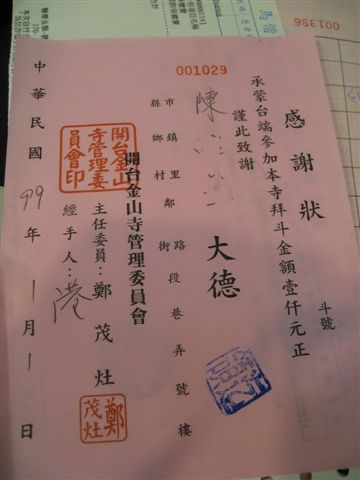 001396
001029
感謝狀
斗號
承蒙台端參加本寺拜斗金額壹仟元正
謹此致謝
陳 大德
市鎮里鄰路段巷弄號樓
縣鄉村街
開台金山寺管理委員會
開台金山寺管理委員會印
主任委員：鄭茂灶
鄭茂灶
經手人：港
中華民國99年1月1日